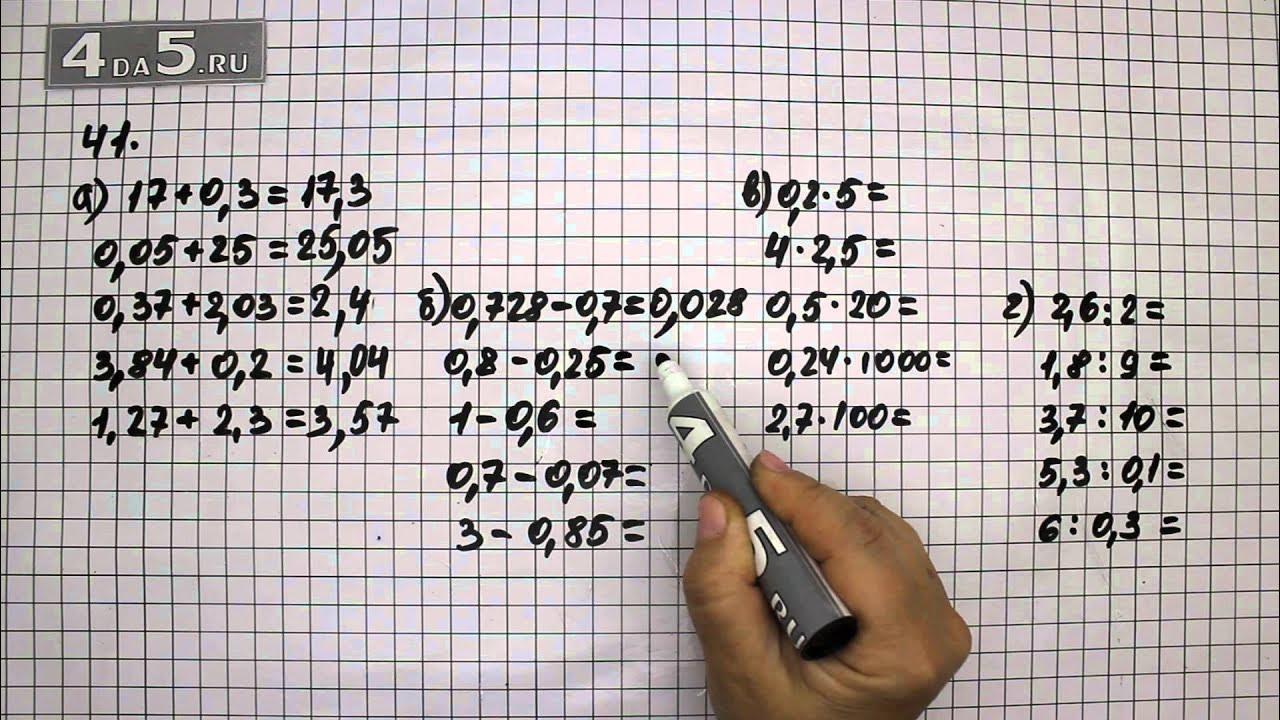 4DA5.RU
41.
а) 17+0,3=17,3
0,05+25=25,05
0,37+2,03=2,4
3,84+0,2=4,04
1,27+2,3=3,57
б) 0,728-0,7=0,028
0,8-0,25=
1-0,6=
0,7-0,07=
3-0,85=
в) 0,2·5=
4·2,5=
0,5·20=
0,24·1000=
2,7·100=
г) 2,6:2=
1,8:9=
3,7:10=
5,3:0,1=
6:0,3=